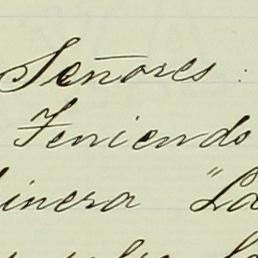 Señores :
Teniendo
inera "La